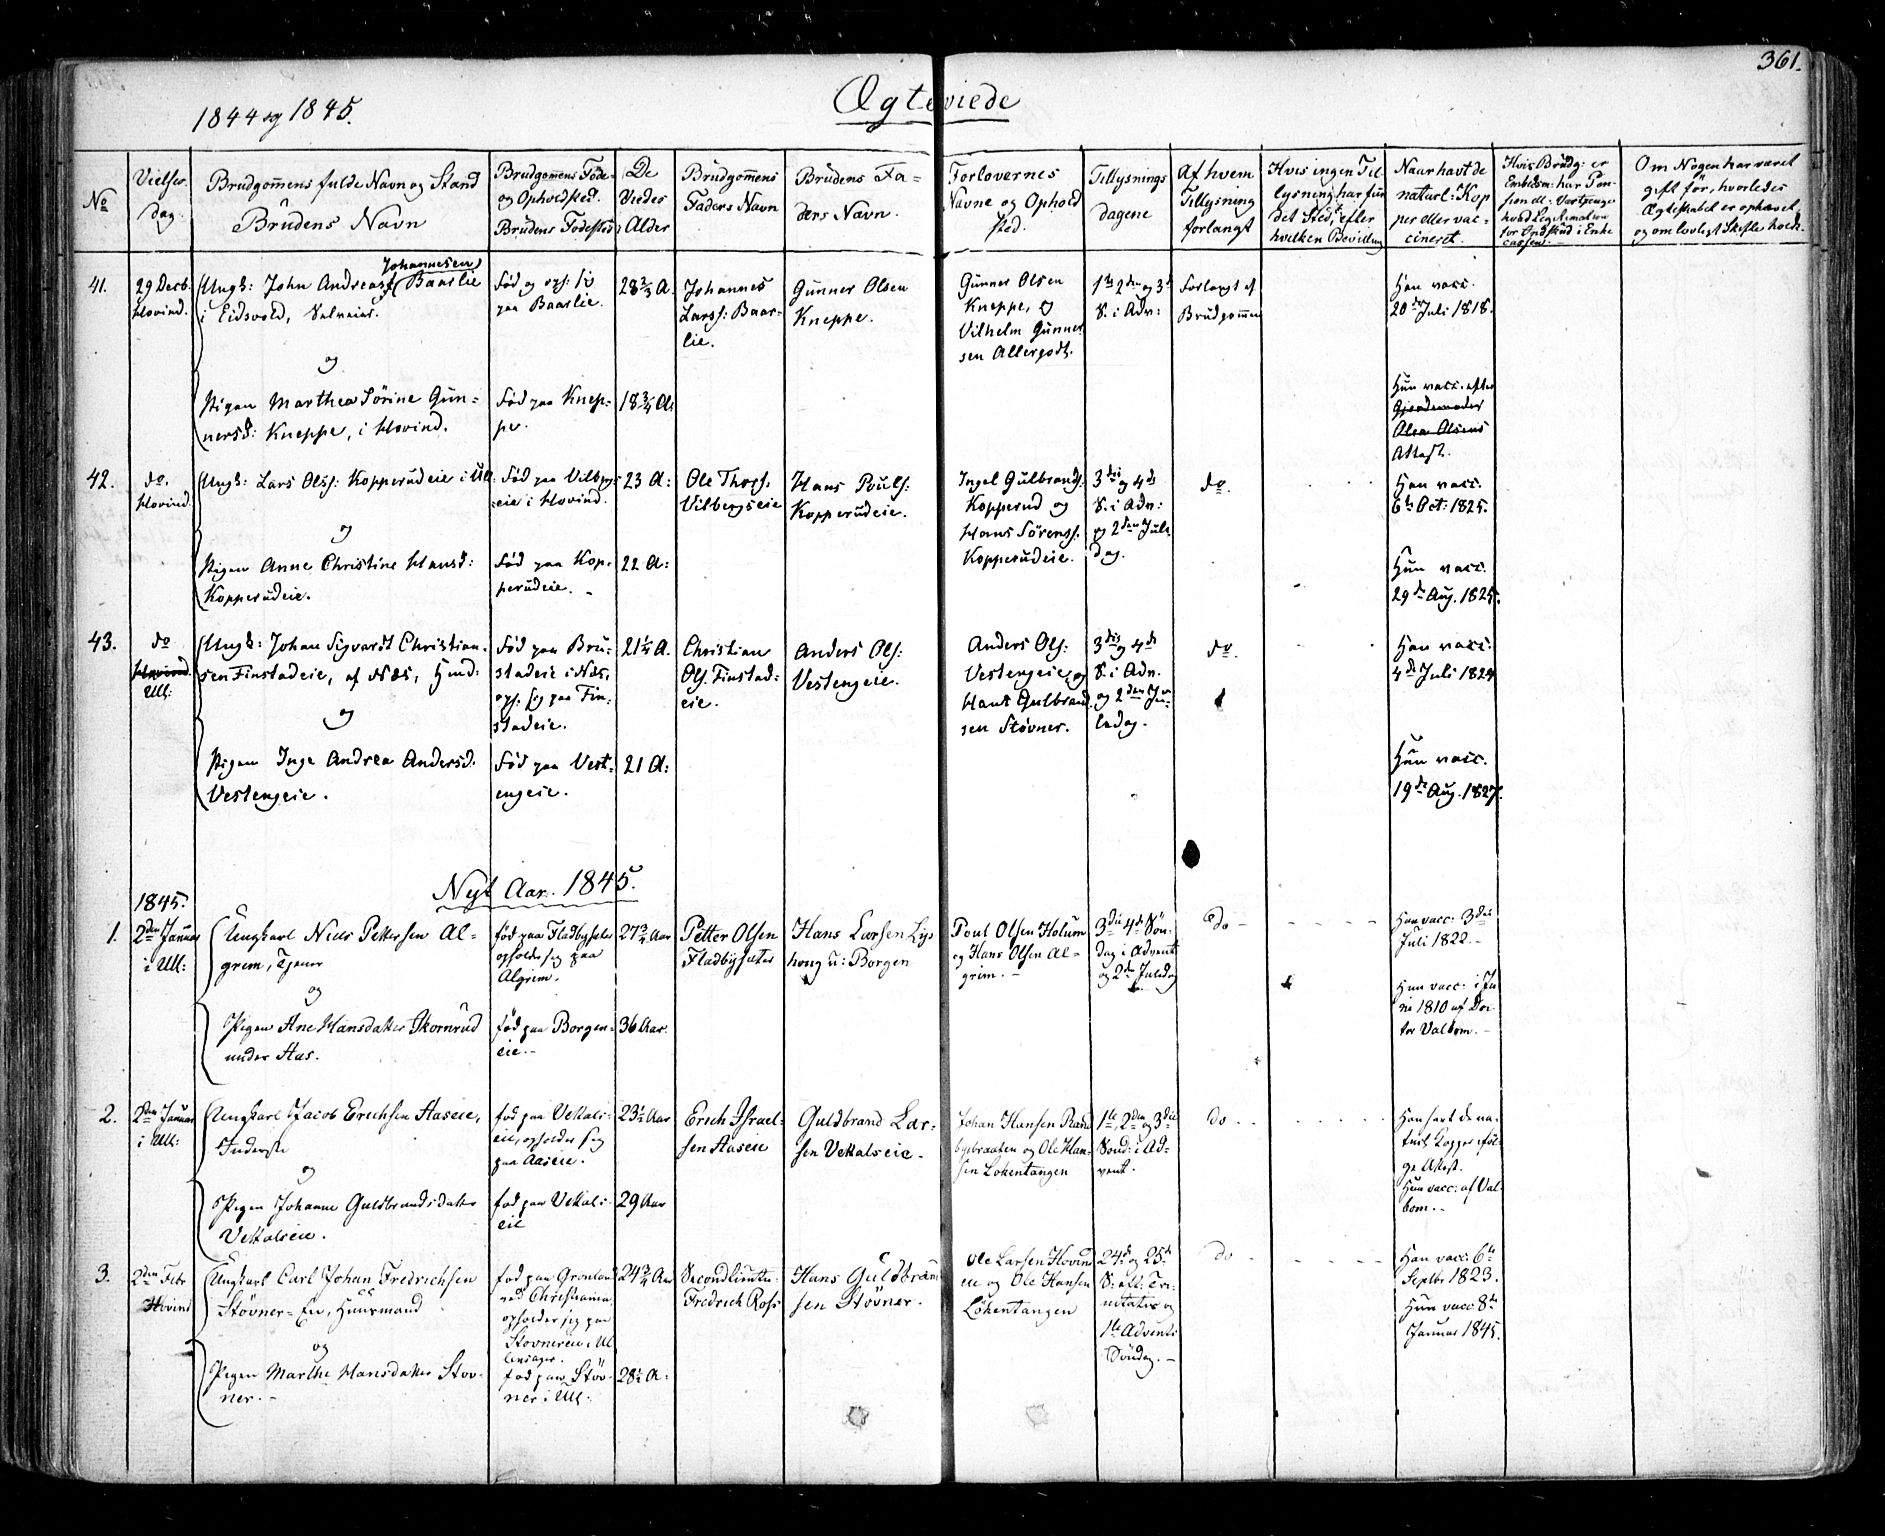 361.
1844 og 1845.
Ægteviede
No
Vielses
dag.
Brudgommens fulde Navn og Stand
Brudens Navn
Brudgomens Føde-
og Opholdsted.
Brudens Fødested
De
Viedes
Alder
Brudgommens
Faders Navn
Brudens Fa-
ders Navn.
Forlovernes
Navne og Ophold
sted.
Tillysnings
dagene
Af hvem
Tillysning
forlangt
Hvis ingen Til
lysning har fun
det Sted, efter
hvilken Bevilling
Naar havt de
naturl: Kop
per eller vac-
cineret.
Hvis Brudg: er
Embedsm: har Pen-
sion
Om Nogen har været
gift før, hvorledes
Ægteskabet er ophævet
og om lovligt Skifte holdt.
41.
29 Decb.
Hovind.
Johannesen
Ungk: John Andreas Baarlie
i Eidsvold,
og
Pigen Marthea Sørine Gun-
nersd: Kneppe, i Hovind.
Fød og oph: sig
paa Baarlie.
Fød paa Knep-
pe.
28 2/3 A.
18 3/4 A:
Johannes
Larss: Baar-
lie.
Gunner Olsen
Kneppe.
Gunner Olsen
Kneppe, og
Vilhelm Gunner
sen Allergodt.
1ste 2den og 3die
S. i Adv:
Forlangt af
Brudgommen
Han vacc.
20de Juli 1818.
Hun vacc. efter
Gjordemoder
Olea Olsens
Attest.
42.
do.
Hovind.
Ungk: Lars Olss: Kopperudeie i Ull:
og
Pigen Anne Christine Hansd:
Kopperudeie.
Fød paa Vilbergs-
eie i Hovind.
Fød paa Kop-
perudeie. -
23 A:
22 A:
Ole Thors.
Vilbergseie
Hans Pouls:
Kopperudeie.
Ingel Gulbrands:
Kopperud og
Hans Sørenss.
Kopperudeie.
3die og 4de
S. i Adv:
og 2den Jule
dag.
do.
Han vacc.
6te Oct: 1825.
Hun vacc.
29de Aug. 1825.
43.
do
Hovind
Ull:
Ungk: Johan Sigvardt Christian-
sen Finstadeie, af Næs,
og
Pigen Inge Andrea Andersd.
Vestengeie.
Fød paa Bru-
stadeie i Næs,
oph. sig paa Fin-
stadeie.
Fød paa Vest-
engeie.
21 1/4 A.
21 A:
Christian
Ols. Finstad-
eie.
Anders Ols:
Vestengeie.
Anders Ols:
Vestengeie, og
Hans Gulbrand
sen Støvner.
3die og 4de
S. i Adv.
og 2den Ju-
ledag.
do.
Han vacc.
4de Juli 1824
Hun vacc.
19de Aug. 1827.
Nyt Aar 1845.
1845.
1.
2den Januar
i Ull:
Ungkarl Niels Pettersen Al-
grim, Tjener
og
Pigen Ane Hansdatter Skornrud
under Aas.
fød paa Fladbysæter
opholder sig paa
Algrim.
fød paa Borgen-
eie.-
27 3/4 Aar
36 Aar.
Petter Olsen
Fladbysæter
Hans Larsen
houg u: Borgen
Poul Olsen Holum
og Hans Olsen Al-
grim. -
3die 4de Søn-
dag i Advent
og 2den Juledag
do -
Han vacc: 3die
Juli 1822.-
Hun vacc: i Ju
ni 1810 af Doc-
tor Valbom. -
2.
2den Januar
i Ull:
Ungkarl Jacob Erichsen Aaseie,
Inderste
og
Pigen Johanne Guldbrandsdatter
Vekalseie.
fød paa Vekals-
eie, opholder sig
paa Aaseie.
fød paa Vekals-
eie
23 1/2 Aar
29 Aar
Erich Israel-
sen Aaseie
Guldbrand Lar-
sen Vekalseie.
Johan Hansen Rand
bybraaten og Ole Han-
sen Løkentangen
1ste, 2den og 3die
Sønd: i Ad-
vent.
do
Han havt de na-
turl: Kopper iføl-
ge Attest.
Hun vacc: af Val-
bom.-
3.
2den Febr
Hovind
Ungkarl Carl Johan Fredrichsen
Støvner-Eie, Huusmand
og
Pigen Marthe Hansdatter Støv-
ner.-
fød paa Grønland
ved Christiania,
opholder sig paa
Støvnereie i Ul
lensager.
fød paa Støv-
ner i Ull:
24 3/4 Aar
28 1/2 A:
Secondlieute-
Fredrich Ross
Hans Guldbrand
sen Støvner.
Ole Larsen Hovind
eie og Ole Hansen
Løkentangen
24de og 25de
S: eft: Tri-
nitatis og
1ste Advents
Søndag. -
do
Han vacc: 6te
Septbr 1823.
Hun vacc 8de
Januar 1845.